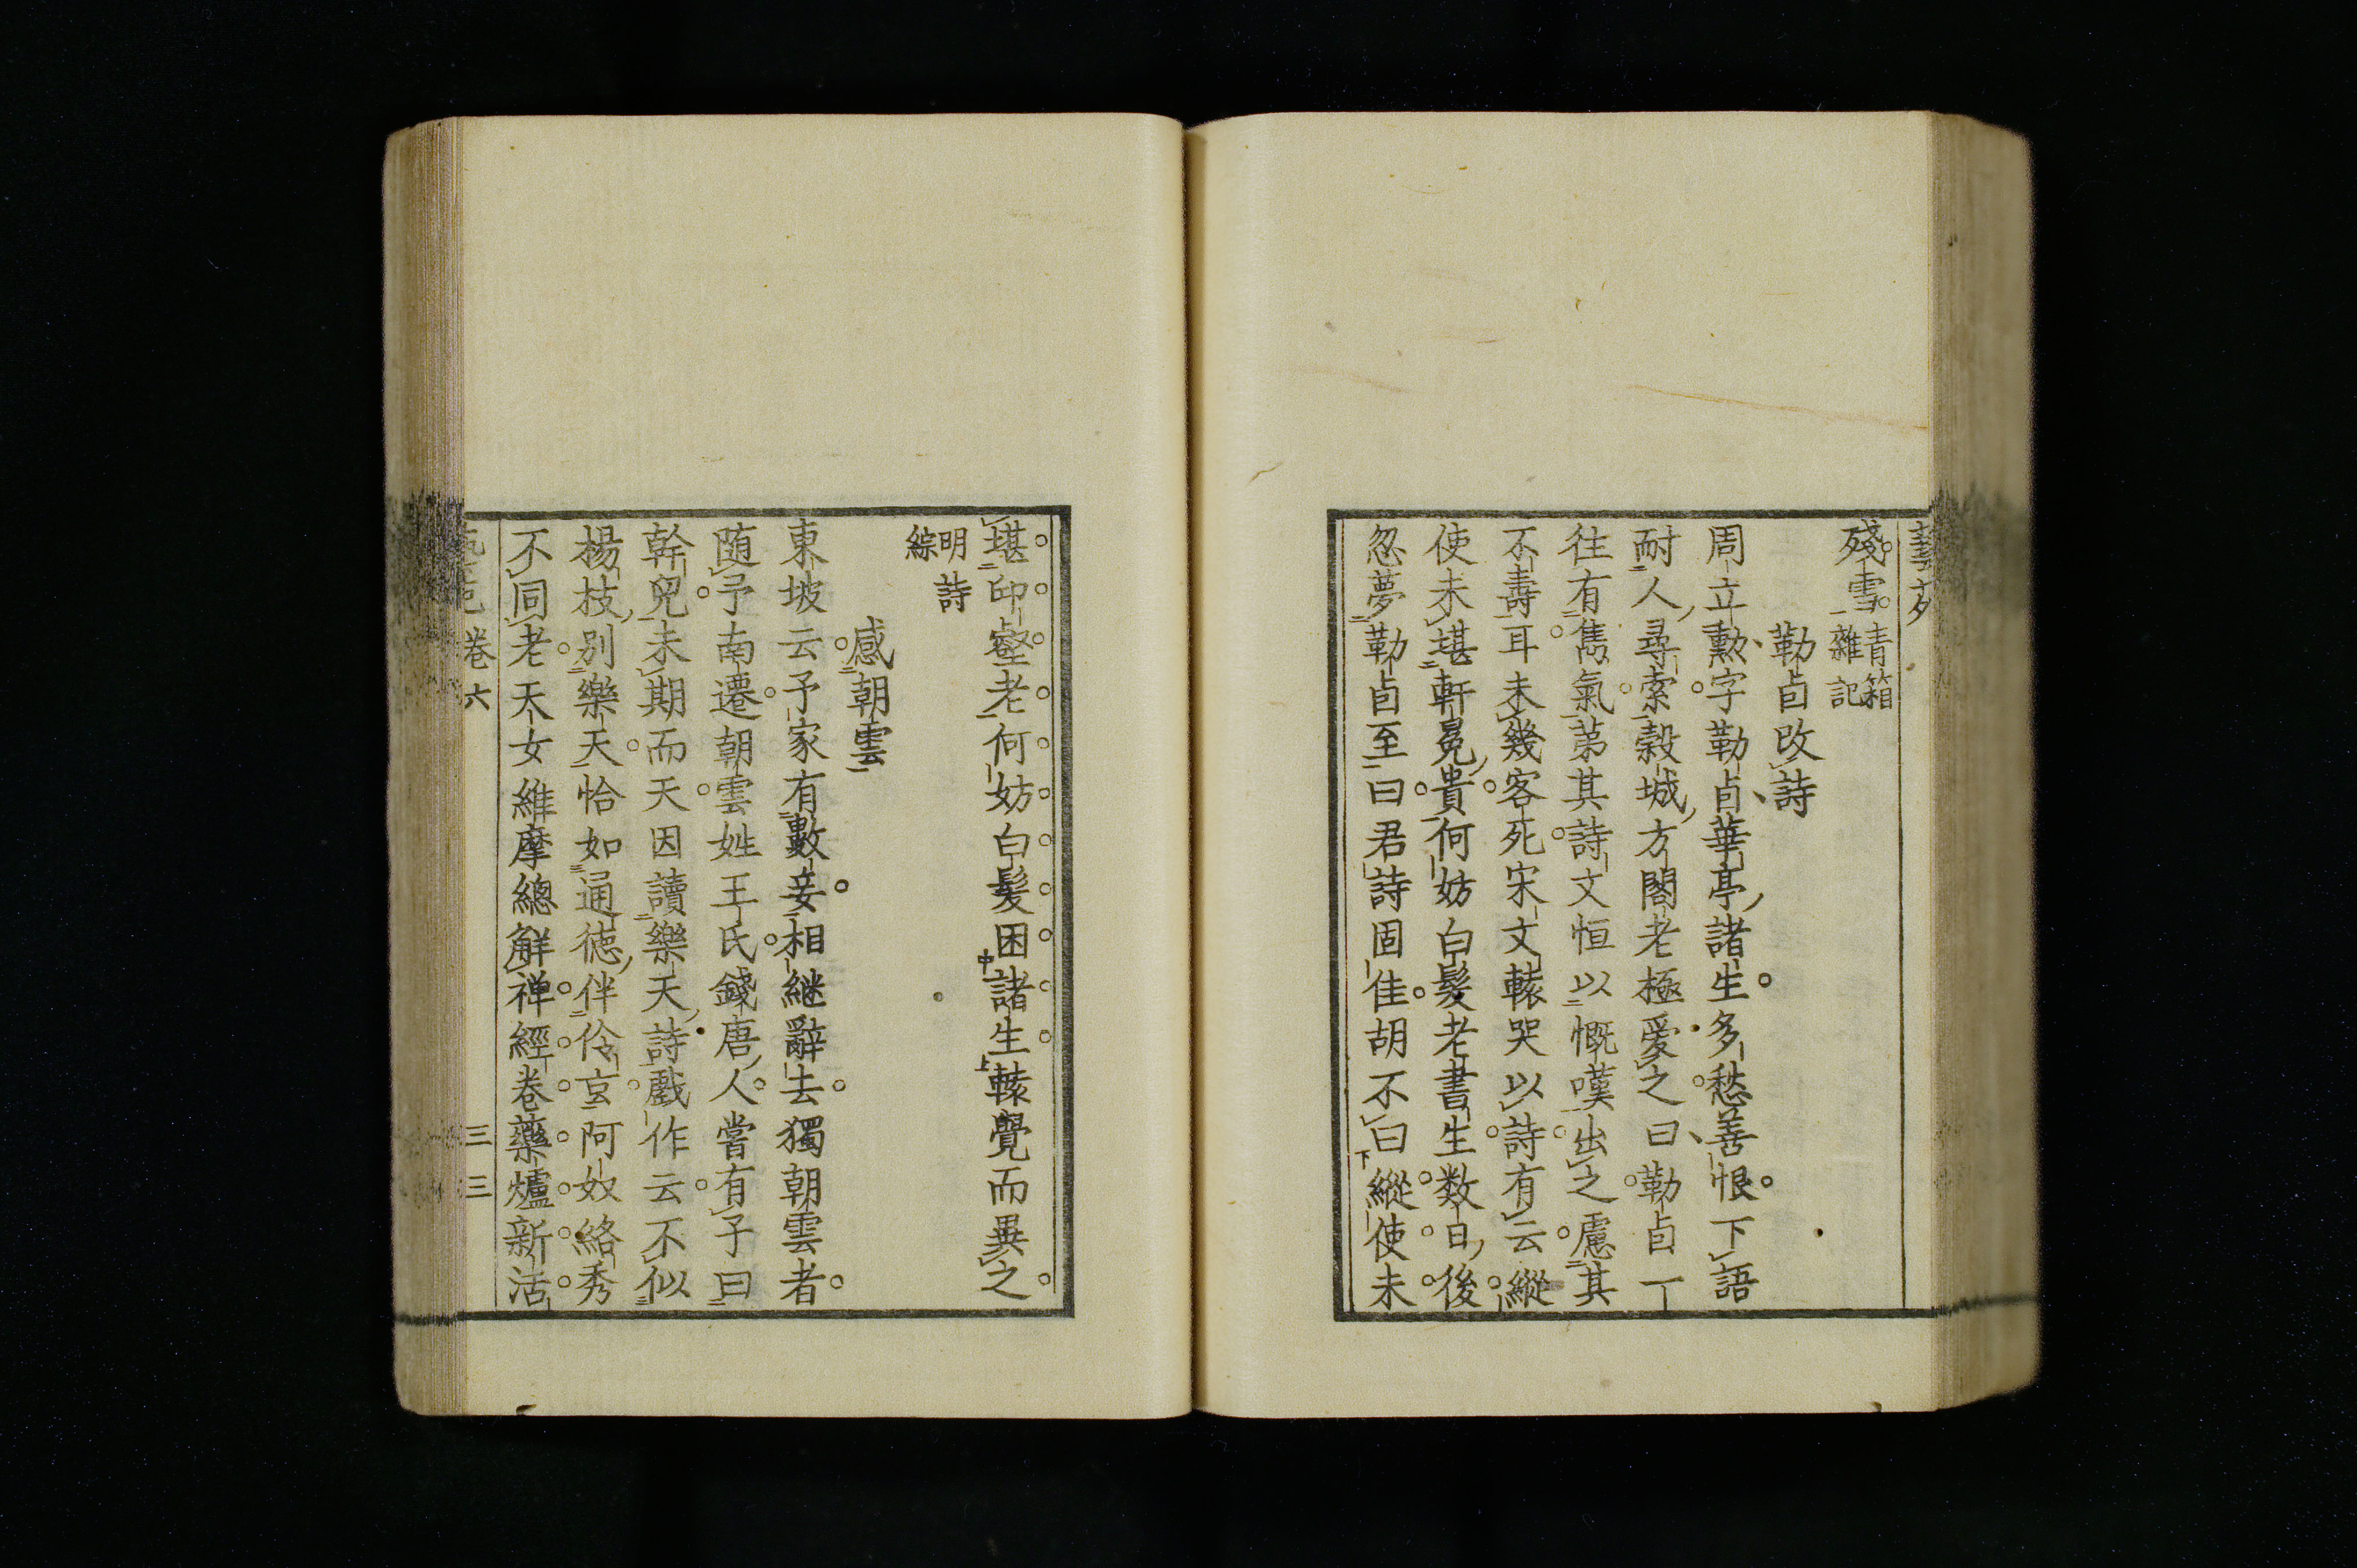 殘雪青箱
雜記
勒卣改詩
周立勲字勒卣華亭諸生多愁善恨下語
耐人尋索穀城方閣老極愛之曰勒卣一
往有雋氣第其詩文恒以慨嘆出之慮其
不壽耳未幾客死宋文轅哭以詩有云縱
使未堪軒冕貴何妨白髮老書生数日後
忽夢勒卣至曰君詩固佳胡不曰縱使未
堪印壑老何妨白髮困諸生轅覺而異之
明詩
綜
感朝雲
東坡云予家有數妾相継辭去獨朝雲者
随予南遷朝雲姓王氏錢唐人嘗有子曰
幹兒未期而天因讀樂天詩戲作云不似
楊枝別樂天恰如通徳伴伶玄阿奴絡秀
不同老天女維摩總解禅經卷藥爐新活
卷六 三三